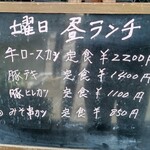 土曜日 昼ランチ
牛ロースカツ 定食 ¥2200円
豚テキ 定食 ¥1400円
豚ヒレカツ 定食 ¥1100円
みそ串カツ 定食 ¥850円